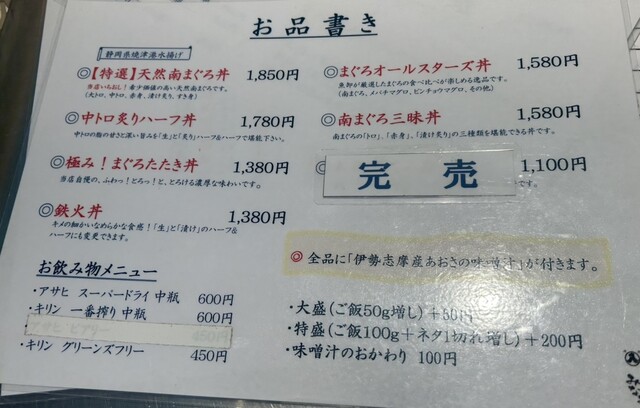 お品書き
静岡県焼津港水揚げ
◎【特選】天然南まぐろ丼 1,850円
当店いちおし!希少価値の高い天然南まぐろです。
(大トロ、中トロ、赤身、漬け炙り、すき身)
◎中トロ炙りハーフ丼 1,780円
中トロの脂の甘さと深い旨みを「生」と「炙り」ハーフ&ハーフで堪能下さい。
◎極み!まぐろたたき丼 1,380円
当店自慢の、ふわっ!とろっ!と、とろける濃厚な味わいです。
◎鉄火丼 1,380円
キメの細かいなめらかな食感!「生」と「漬け」のハーフ&
ハーフにも変更できます。
◎まぐろオールスターズ丼 1,580円
魚卸が厳選したまぐろの食べ比べが楽しめる逸品です。
(南まぐろ、メバチマグロ、ビンチョウマグロ、その他)
◎南まぐろ三昧丼 1,580円
南まぐろの「トロ」、「赤身」、「漬け炙り」の三種類を堪能できる丼です。
完売 1,100円
◎ 全品に「伊勢志摩産あおさの味噌汁」が付きます。
お飲み物メニュー
・アサヒ スーパードライ 中瓶 600円
・キリン 一番搾り 中瓶 600円
450円
・キリン グリーンズフリー 450円
・大盛(ご飯50g増し)+50円
・特盛(ご飯100g+ネタ1切れ増し)+200円
・味噌汁のおかわり 100円